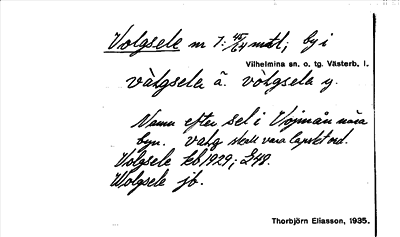 Volgsele nr 1: 45/64 mtl; by i
Vilhelmina sn. o. tg. Västerb. l.
vå̀lgsela ä. vò̀lgsela y.
Namn efter sel i Vojmån nära
byn. valg skall vara lapskt ord.
Volgsele kb 1929; £48.
Wolgsele jb.
Thorbjörn Eliasson, 1935.